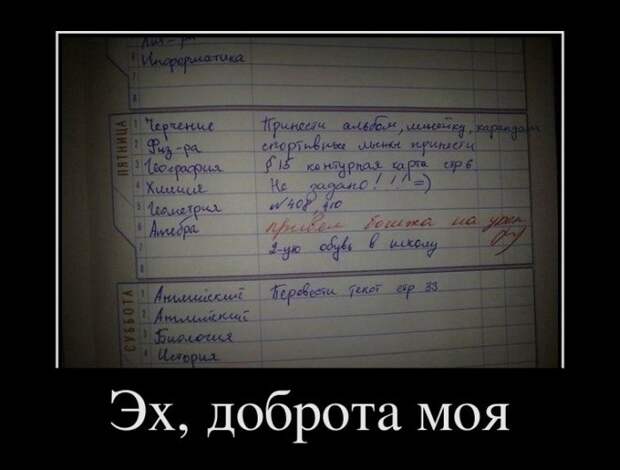 Информатика
6
7
8
ПЯТНИЦА
1 Черчение Принести альбом, линейку, карандаш
2 Физ-ра спортивные лыжи принести
3 География § 15 контурная карта стр 6
4 Химия Не задано!!! =)
5 Геометрия № 408
6 Алгебра привёл бомжа на урок
7 2-ую обувь в школу
8
СУББОТА
1 Английский Перевести текст стр 33
2 Английский
3 Биология
4 История
Эх, доброта моя